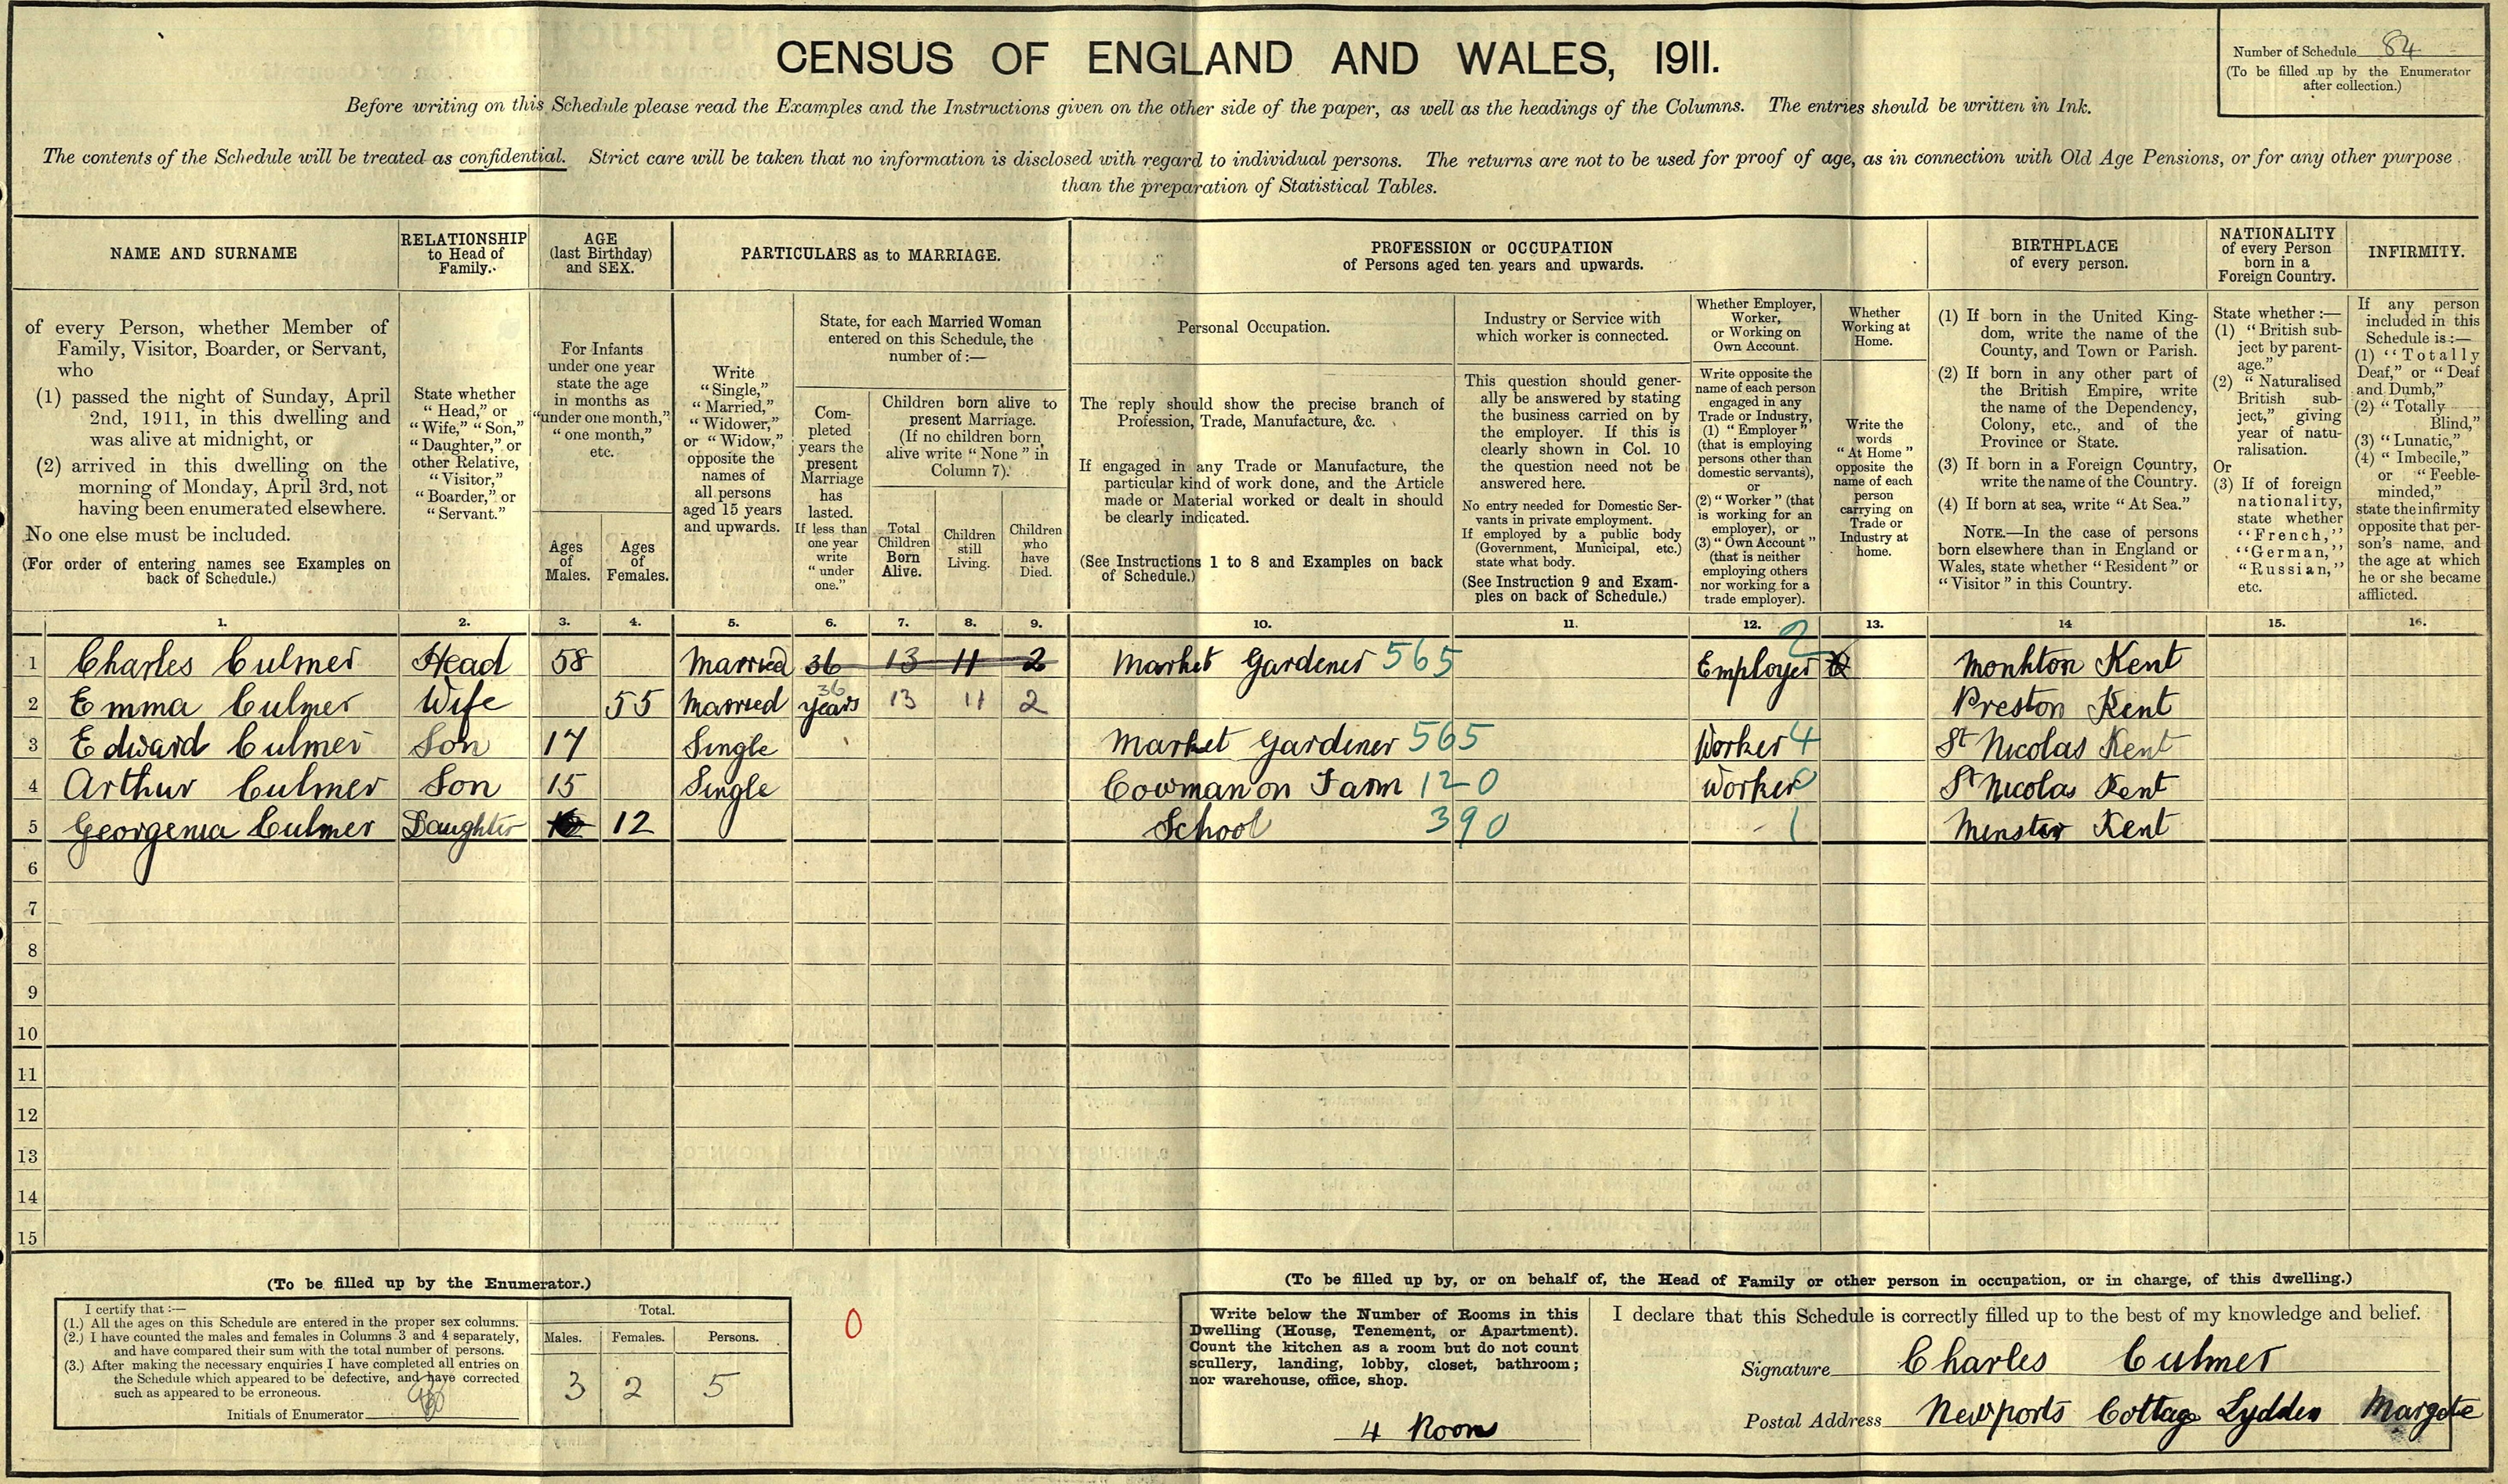 CENSUS OF ENGLAND AND WALES, 1911.
Number of Schedule 84
(To be filled up by the Enumerator
after collection.)
Before writing on this Schedule please read the Examples and the Instructions given on the other side of the paper, as well as the headings of the Columns. The entries should be written in Ink.
The contents of the Schedule will be treated as confidential. Strict care will be taken that no information is disclosed with regard to individual persons. The returns are not to be used for proof of age, as in connection with Old Age Pensions, or for any other purpose
than the preparation of Statistical Tables.
NAME AND SURNAME
of every Person, whether Member of
Family, Visitor, Boarder, or Servant,
who
(1) passed the night of Sunday, April
2nd, 1911, in this dwelling and
was alive at midnight, or
(2) arrived in this dwelling on the
morning of Monday, April 3rd, not
having been enumerated elsewhere.
No one else must be included.
(For order of entering names see Examples on
back of Schedule.)
RELATIONSHIP
to Head of
Family.
State whether
"Head," or
"Wife," "Son,"
"Daughter," or
other Relative,
"Visitor,"
"Boarder," or
"Servant."
AGE
(last Birthday)
and SEX.
For Infants
under one year
state the age
in months as
"under one month,"
"one month,"
etc.
Ages
of
Males.
Ages
of
Females.
PARTICULARS as to MARRIAGE.
Write
"Single,"
"Married,"
"Widower,"
or "Widow,"
opposite the
names of
all persons
aged 15 years
and upwards.
State, for each Married Woman
entered on this Schedule, the
number of:—
Com-
pleted
years the
present
Marriage
has
lasted.
If less than
one year
write
"under
one."
Children born alive to
present Marriage.
(If no children born
alive write "None" in
Column 7).
Total
Children
Born
Alive.
Children
still
Living.
Children
who
have
Died.
PROFESSION or OCCUPATION
of Persons aged ten years and upwards.
Personal Occupation.
The reply should show the precise branch of
Profession, Trade, Manufacture, &c.
If engaged in any Trade or Manufacture, the
particular kind of work done, and the Article
made or Material worked or dealt in should
be clearly indicated.
(See Instructions 1 to 8 and Examples on back
of Schedule.)
Industry or Service with
which worker is connected.
This question should gener-
ally be answered by stating
the business carried on by
the employer. If this is
clearly shown in Col. 10
the question need not be
answered here.
No entry needed for Domestic Ser-
vants in private employment.
If employed by a public body
(Government, Municipal, etc.)
state what body.
(See Instruction 9 and Exam-
ples on back of Schedule.)
Whether Employer,
Worker,
or Working on
Own Account.
Write opposite the
name of each person
engaged in any
Trade or Industry,
(1) "Employer"
(that is employing
persons other than
domestic servants),
or
(2) "Worker" (that
is working for an
employer), or
(3) "Own Account"
(that is neither
employing others
nor working for a
trade employer).
Whether
Working at
Home.
Write the
words
"At Home"
opposite the
name of each
person
carrying on
Trade or
Industry at
home.
BIRTHPLACE
of every person.
(1) If born in the United King-
dom, write the name of the
County, and Town or Parish.
(2) If born in any other part of
the British Empire, write
the name of the Dependency,
Colony, etc., and of the
Province or State.
(3) If born in a Foreign Country,
write the name of the Country.
(4) If born at sea, write "At Sea."
NOTE.—In the case of persons
born elsewhere than in England or
Wales, state whether "Resident" or
"Visitor" in this Country.
NATIONALITY
of every Person
born in a
Foreign Country.
State whether:—
(1) "British sub-
ject by parent-
age."
(2) "Naturalised
British sub-
ject," giving
year of natu-
ralisation.
Or
(3) If of foreign
nationality,
state whether
"French,"
"German,"
"Russian,"
etc.
INFIRMITY.
If any person
included in this
Schedule is:—
(1) "Totally
Deaf," or "Deaf
and Dumb,"
(2) "Totally
Blind,"
(3) "Lunatic,"
(4) "Imbecile,"
or "Feeble-
minded,"
state the infirmity
opposite that per-
son's name, and
the age at which
he or she became
afflicted.
1. 2. 3. 4. 5. 6. 7. 8. 9. 10. 11. 12. 13. 14 15. 16.
1 Charles Culmer Head 58 Married 36 13 11 2 Market Gardener 565 Employer 2 Monkton Kent
2 Emma Culmer Wife 55 Married 36 years 13 11 2 Preston Kent
3 Edward Culmer Son 17 Single Market Gardiner 565 Worker 4 St Nicolas Kent
4 Arthur Culmer Son 15 Single Cowman on Farm 120 Worker 0 St Nicolas Kent
5 Georgenia Culmer Daughter 12 School 390 1 Minster Kent
6
7
8
9
10
11
12
13
14
15
(To be filled up by the Enumerator.)
I certify that:—
(1.) All the ages on this Schedule are entered in the proper sex columns.
(2.) I have counted the males and females in Columns 3 and 4 separately,
and have compared their sum with the total number of persons.
(3.) After making the necessary enquiries I have completed all entries on
the Schedule which appeared to be defective, and have corrected
such as appeared to be erroneous.
Initials of Enumerator
Total.
Males. Females. Persons.
3 2 5
0
(To be filled up by, or on behalf of, the Head of Family or other person in occupation, or in charge, of this dwelling.)
Write below the Number of Rooms in this
Dwelling (House, Tenement, or Apartment).
Count the kitchen as a room but do not count
scullery, landing, lobby, closet, bathroom;
nor warehouse, office, shop.
4 Rooms
I declare that this Schedule is correctly filled up to the best of my knowledge and belief.
Signature Charles Culmer
Postal Address Newports Cottage Lydden Margate